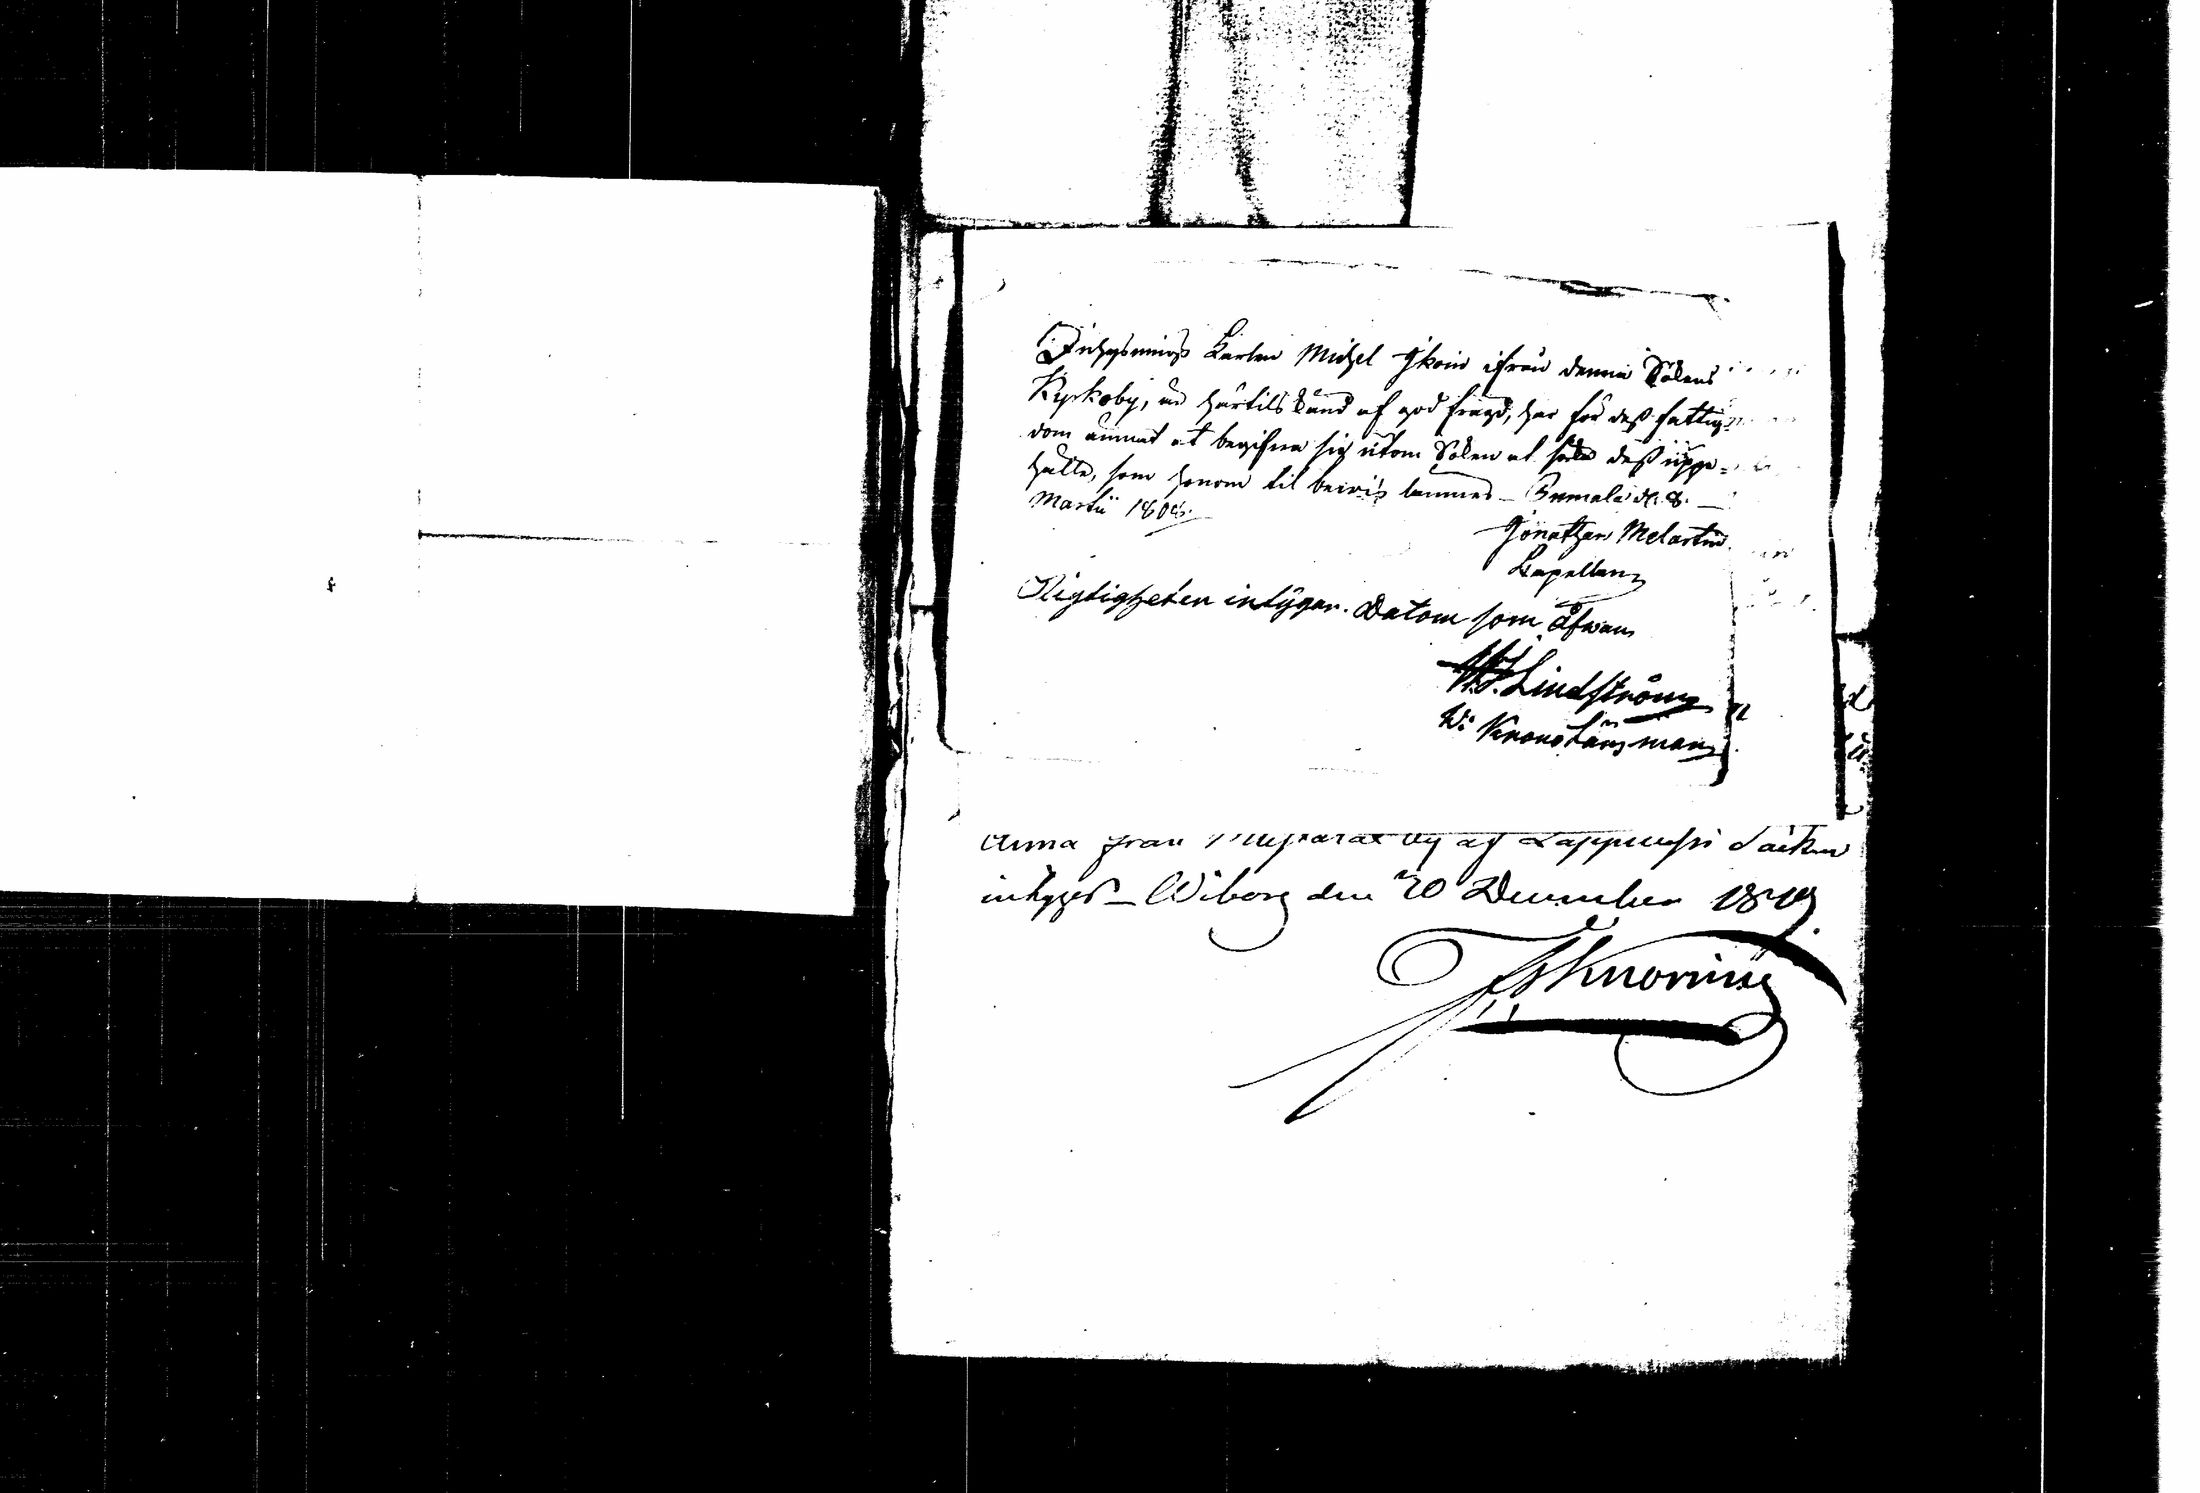 Inhysmings Karlen Michel Ikoin ifrån denna Sokens
Kyrkoby, en härtils känd af god frägd, har för dess fattig-
dom ämnat at begifva sig utom Soken at söka dess uppe-
hälle, som honom til bewis lämnas - Pumala d. 8.
Martii 180
Jonathan Melartin
Capellan
Rigtigheten intÿgar. Datom som åfwan
Lindström
Kronolänsman
Anna från by af Lappwesi Såcken
intyges - Wiborg den 20 December 1819.